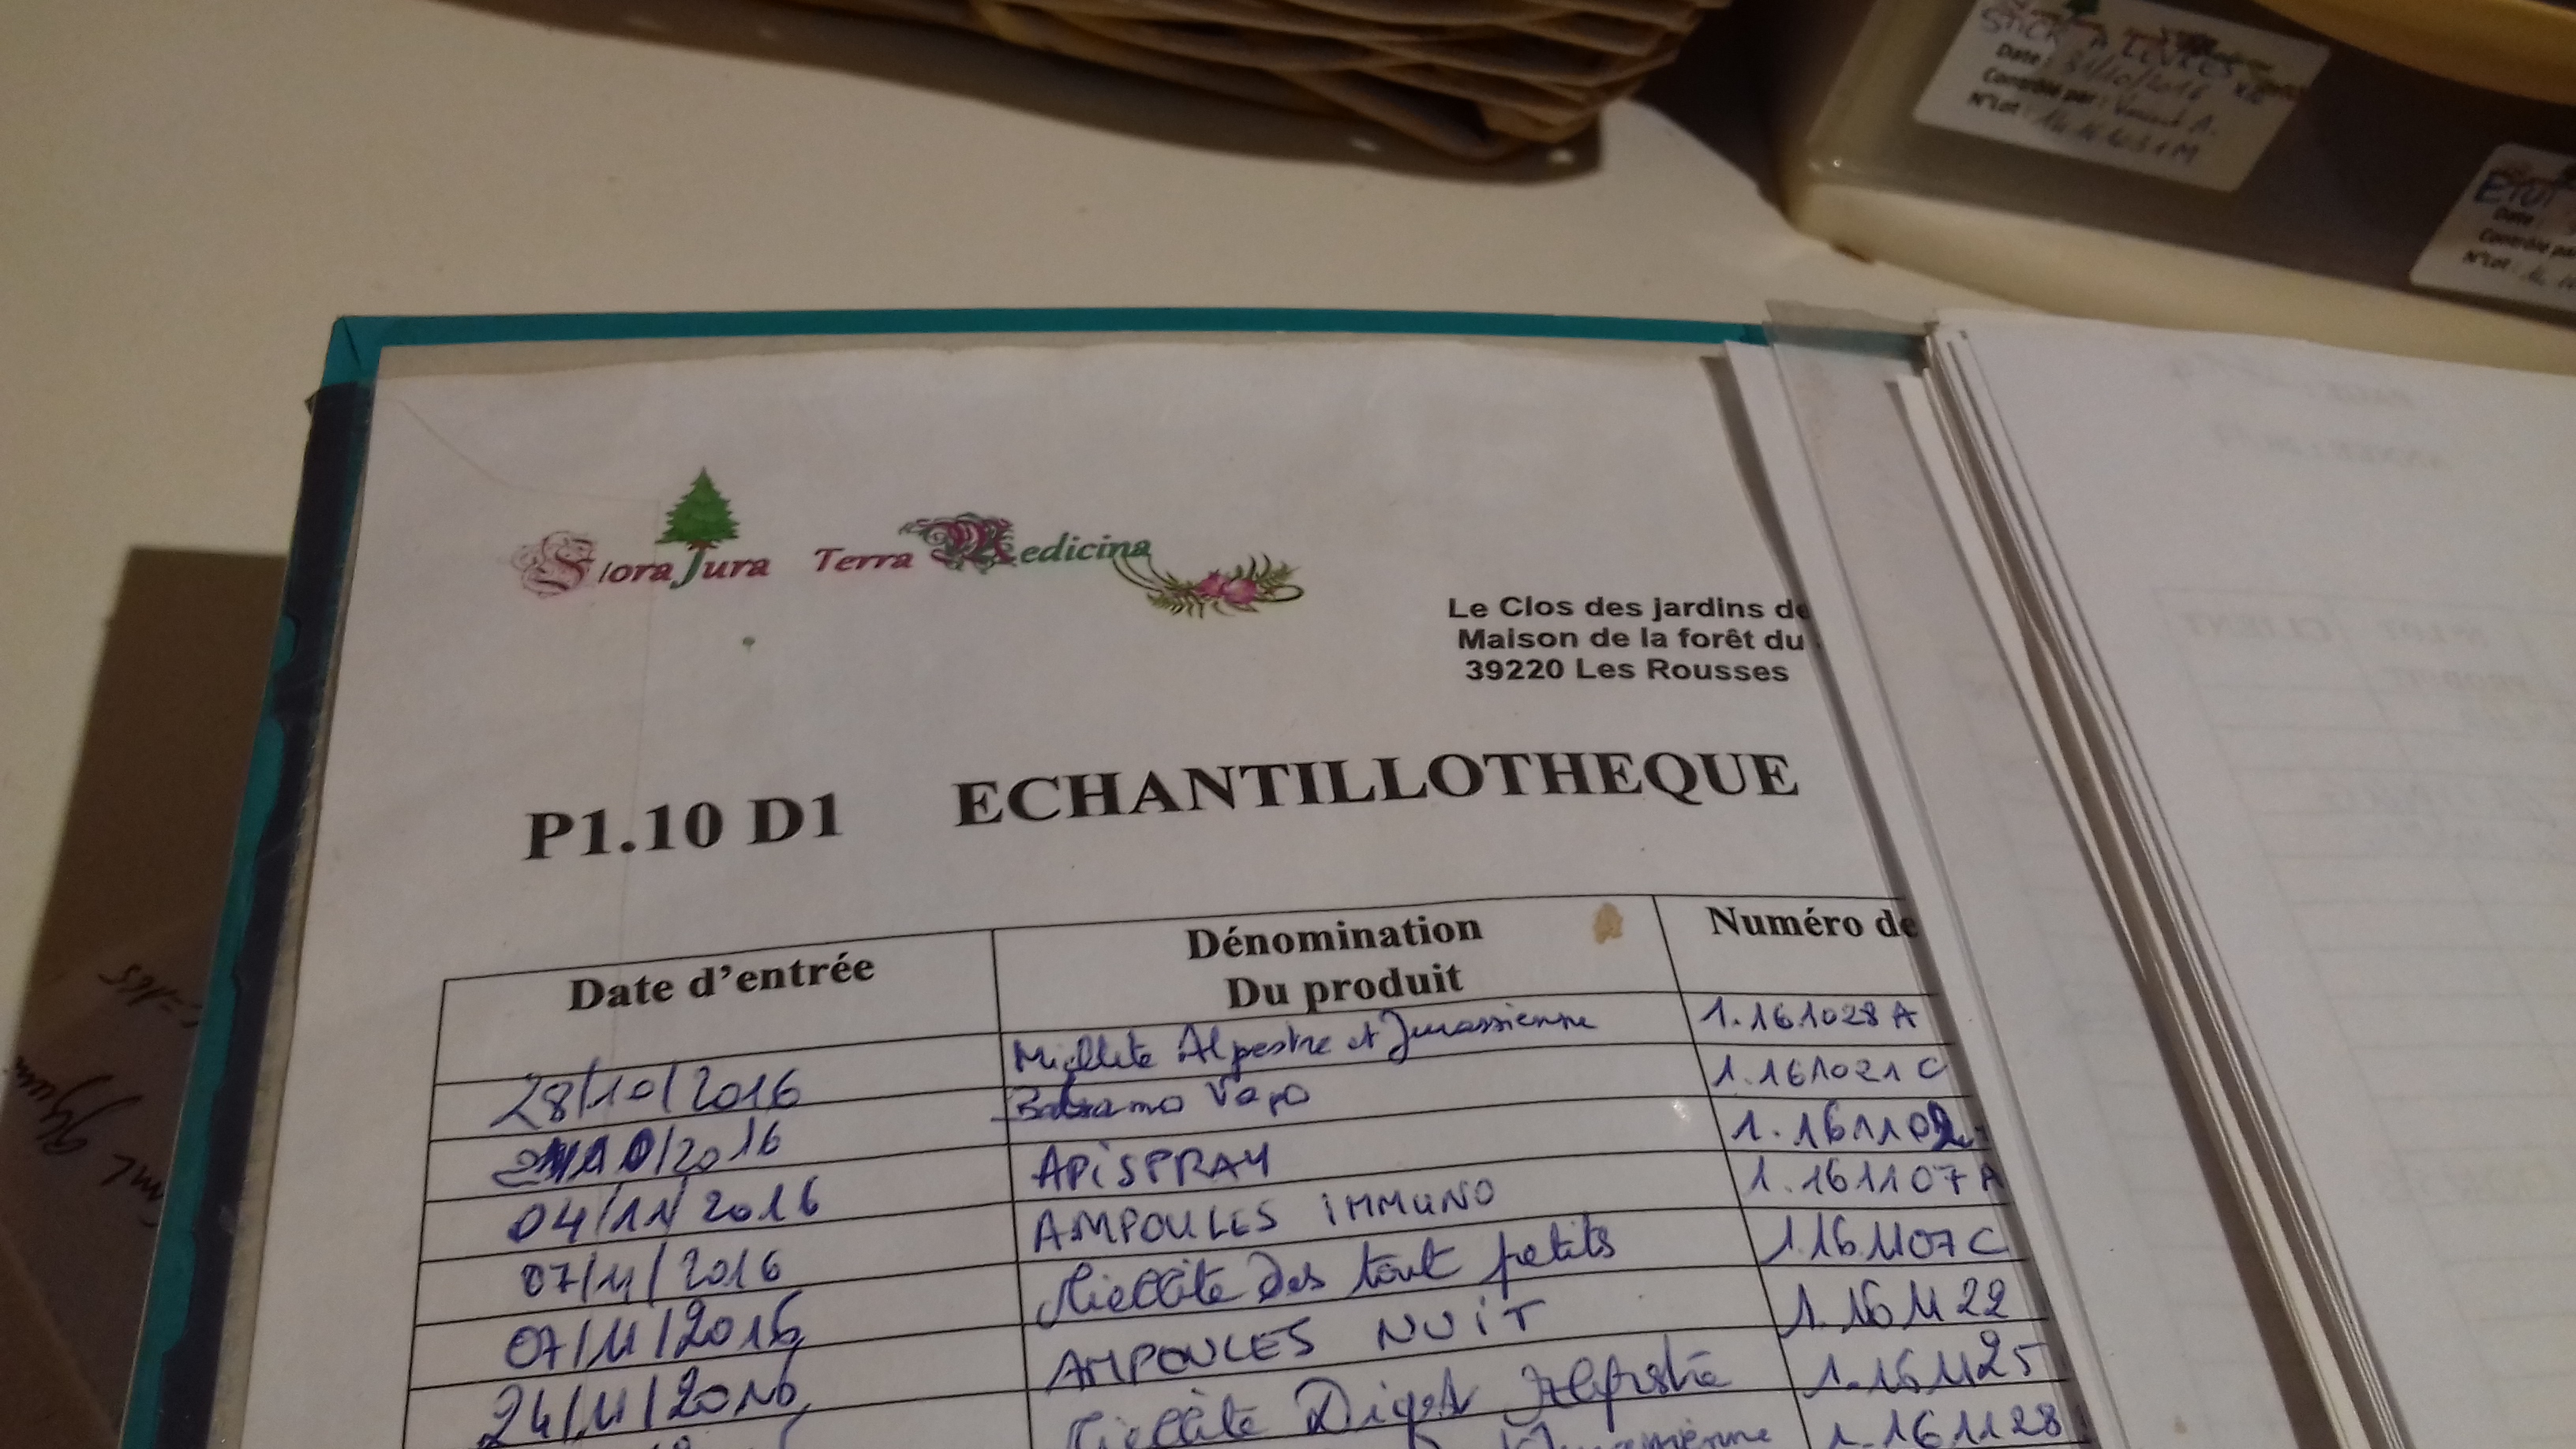 STICK A LEVRES
Date : 31/10/2016
Contrôlé par : Vincent A.
N°Lot :
ETUI
Date :
Contrôlé pa
N°Lot :
Flora Jura Terra Medicina
Le Clos des jardins de
Maison de la forêt du
39220 Les Rousses
P1.10 D1 ECHANTILLOTHEQUE
Date d'entrée Dénomination Du produit Numéro de
28/10/2016 Miellite Alpestre et Jurassienne 1.161028 A
/2016 Balsamo Vapo 1.161021 C
04/11/2016 APISPRAY 1.161102
07/11/2016 AMPOULES IMMUNO 1.161107 A
07/11/2016 Miellite des tout petits 1.161107 C
24/11/2016 AMPOULES NUIT 1.161122
Miellite Digest Alpestre 1.161125
1.161128